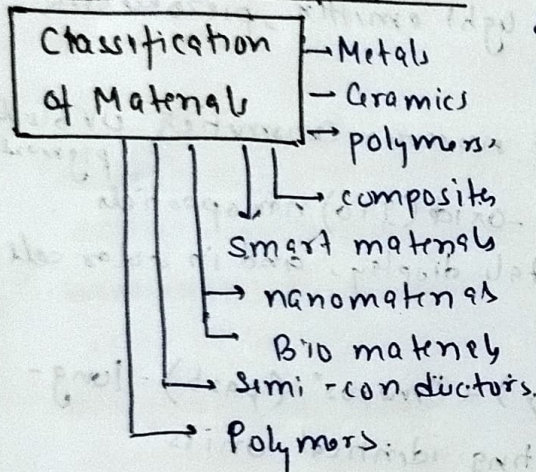 Classification
of Materials
Metals
Ceramics
polymers.
composites
smart materials
nanomaterials
Bio materials
Semi-conductors.
Polymers.